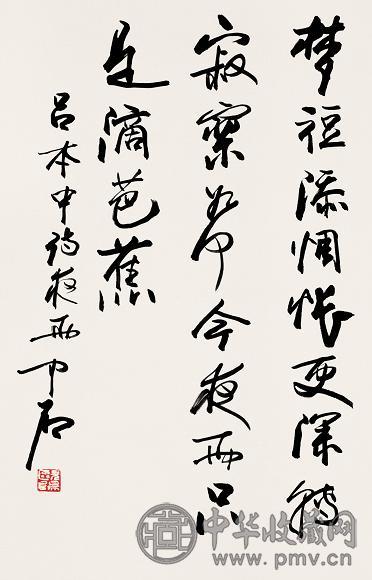 梦短添惆怅更深转
寂寥如何今夜雨只
是滴芭蕉
吕本中诗夜雨中石
中华收藏网
www.pmv.cn